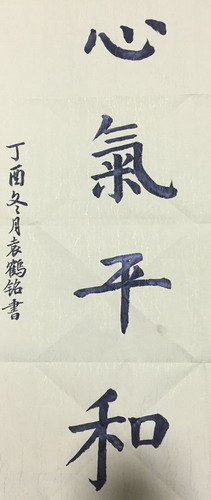 心氣平和
丁酉冬月袁鶴銘書